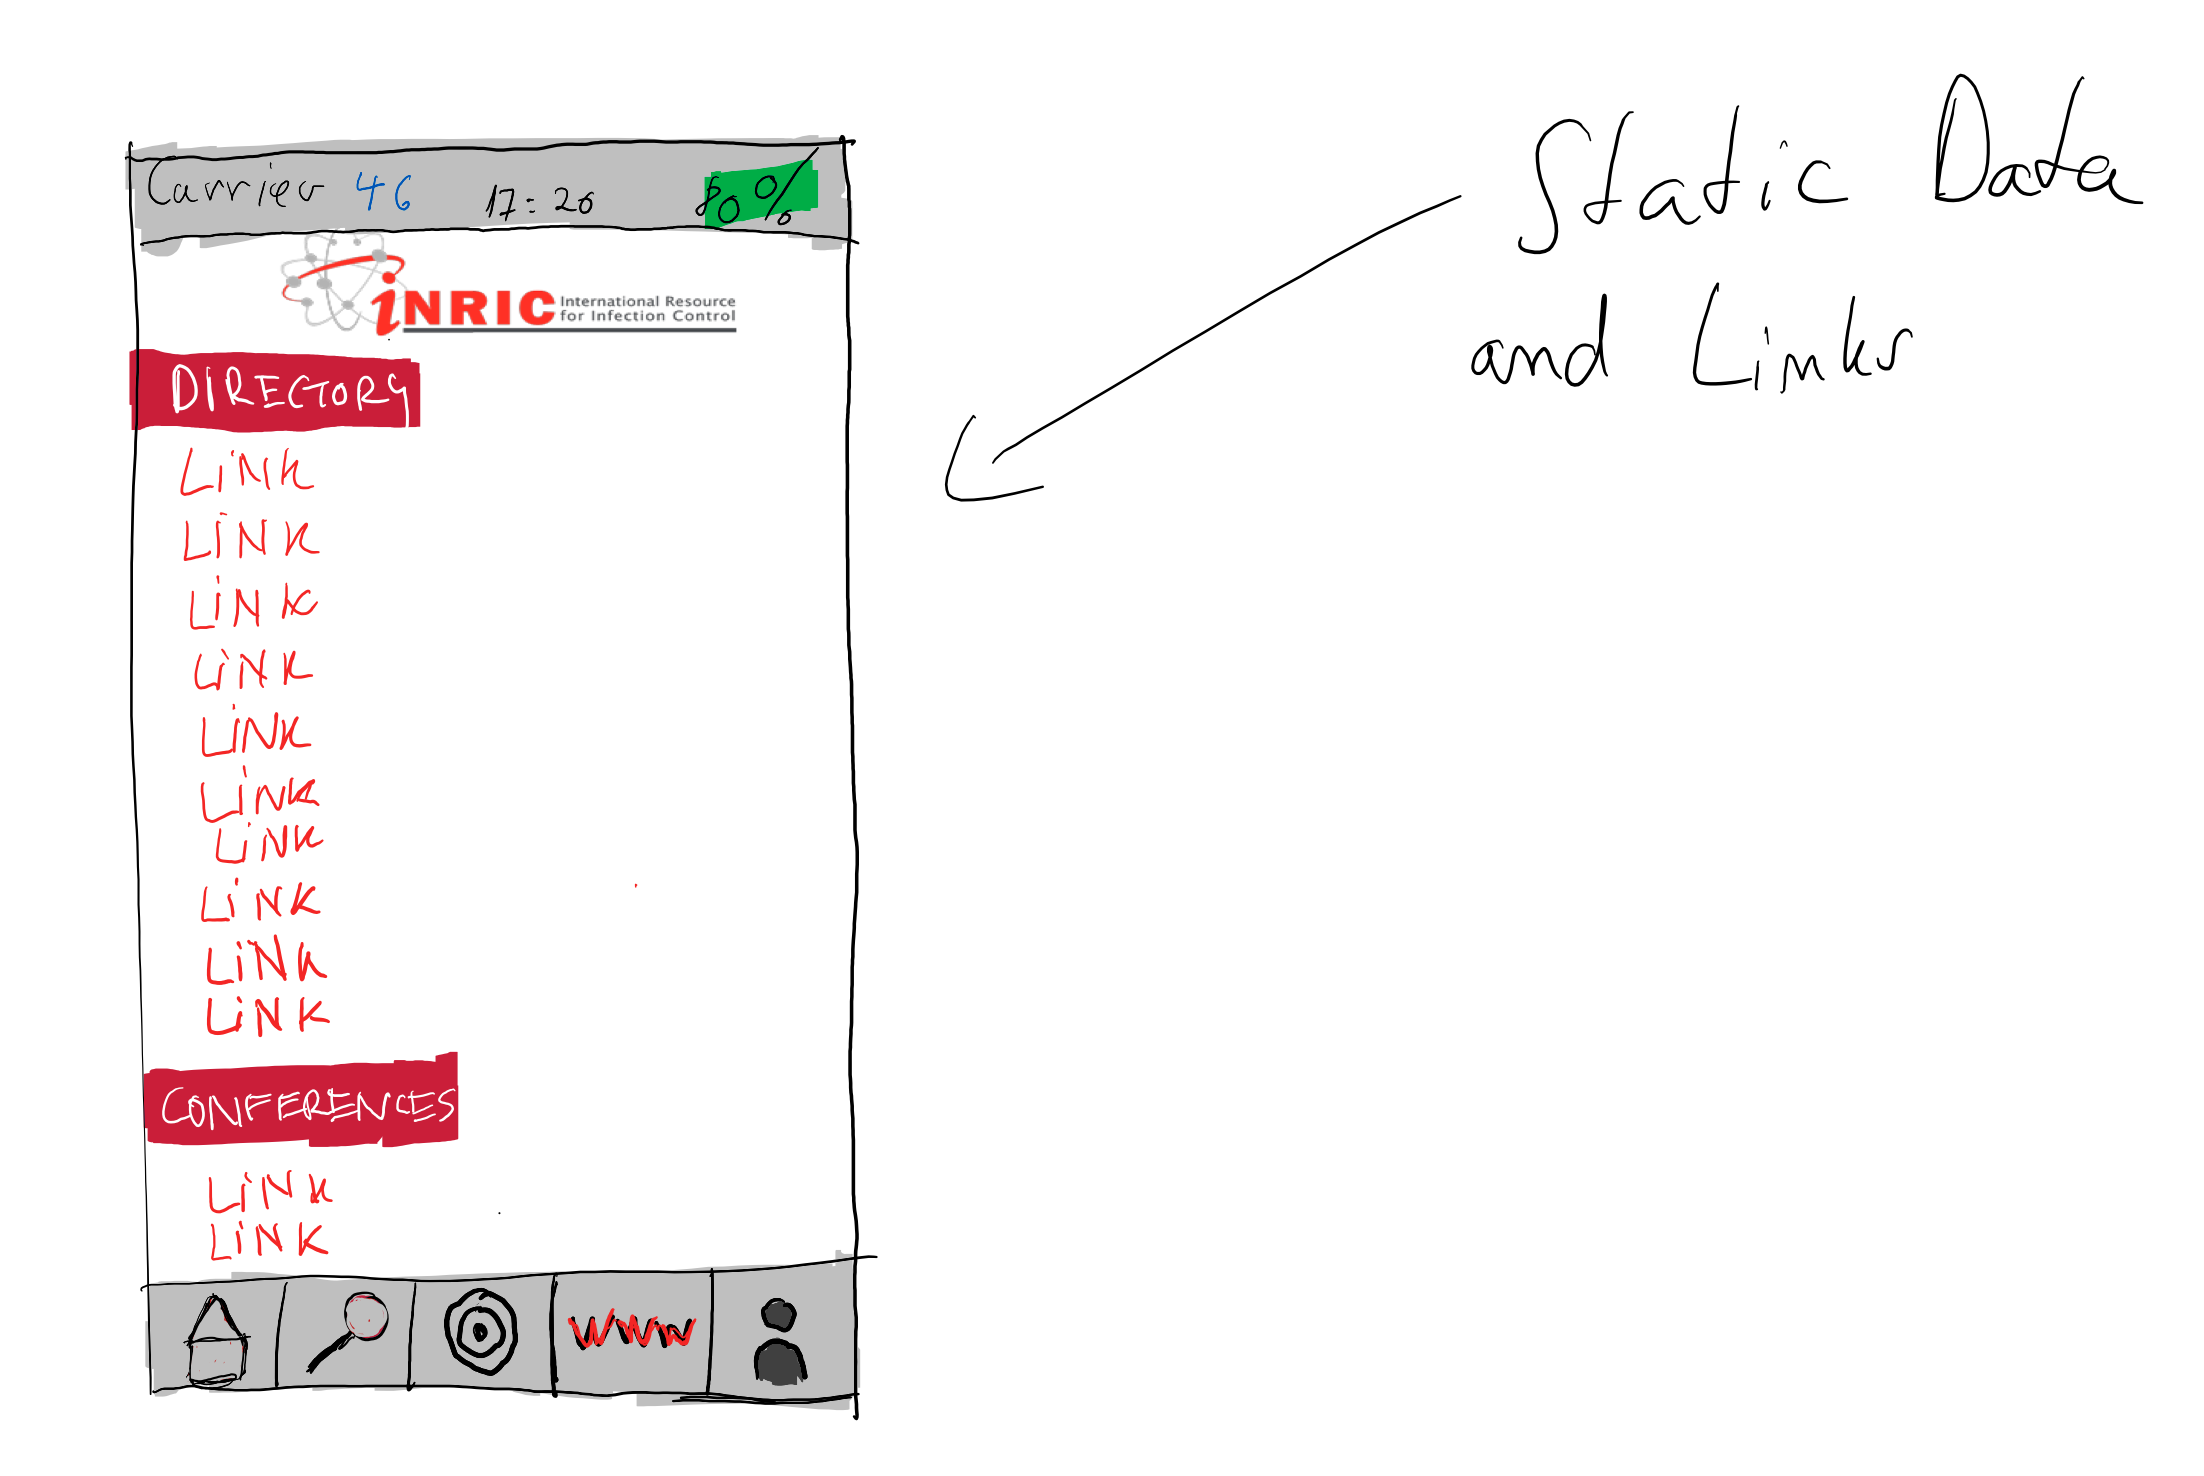 Carrier 4G 17:26 80%
iNRIC International Resource
for Infection Control
DIRECTORY
LiNK
LiNK
LiNK
LiNK
LiNK
LiNK
LiNK
LiNK
LiNK
LiNK
CONFERENCES
LiNK
LiNK
WWW
Static Data
and Links